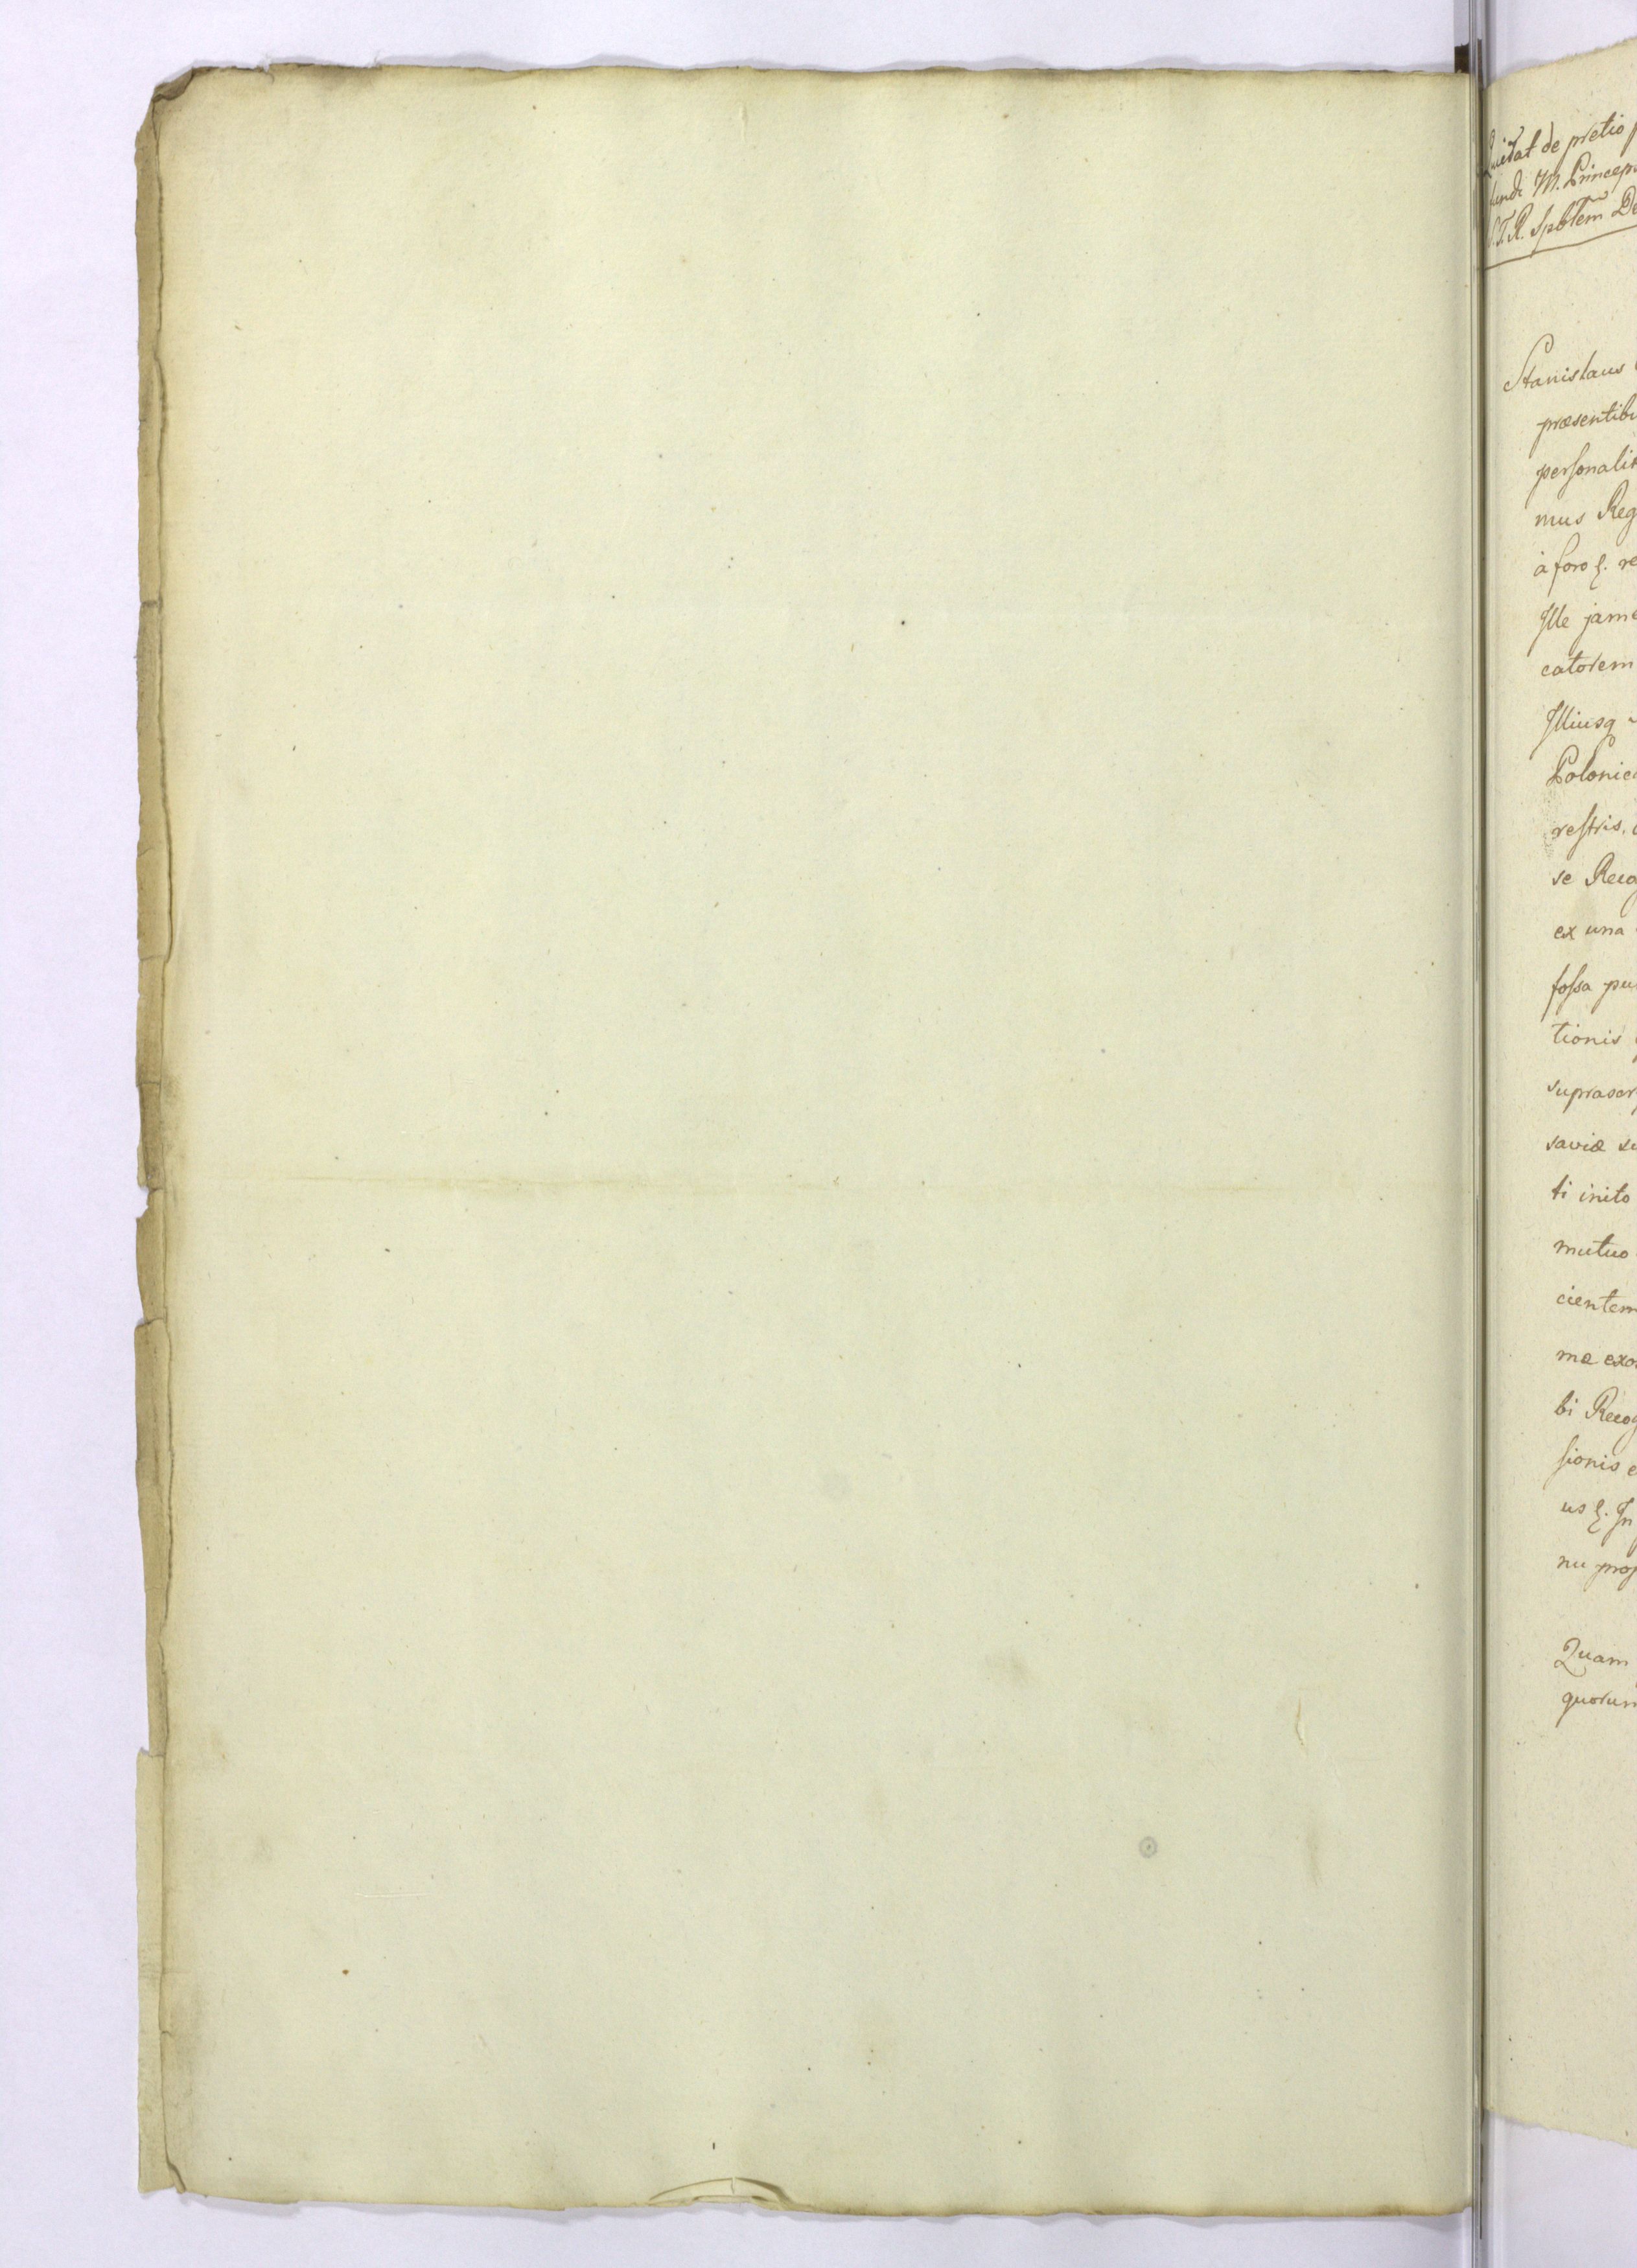 de pretio
fundi M. Princep
S.T.R. Spbtem De
Stanislaus
præsentibu
personalit
mus Reg
à foro ę. re
Ille jam
catorem
Illiusq
Polonic
restris.
se Recog
ex una
fossa pu
tionis
suprascr
saviæ su
ti inito
mutuo
cientem
me exo
bi Recog
sionis e
us ę. In
nu prop
Quam
quorum